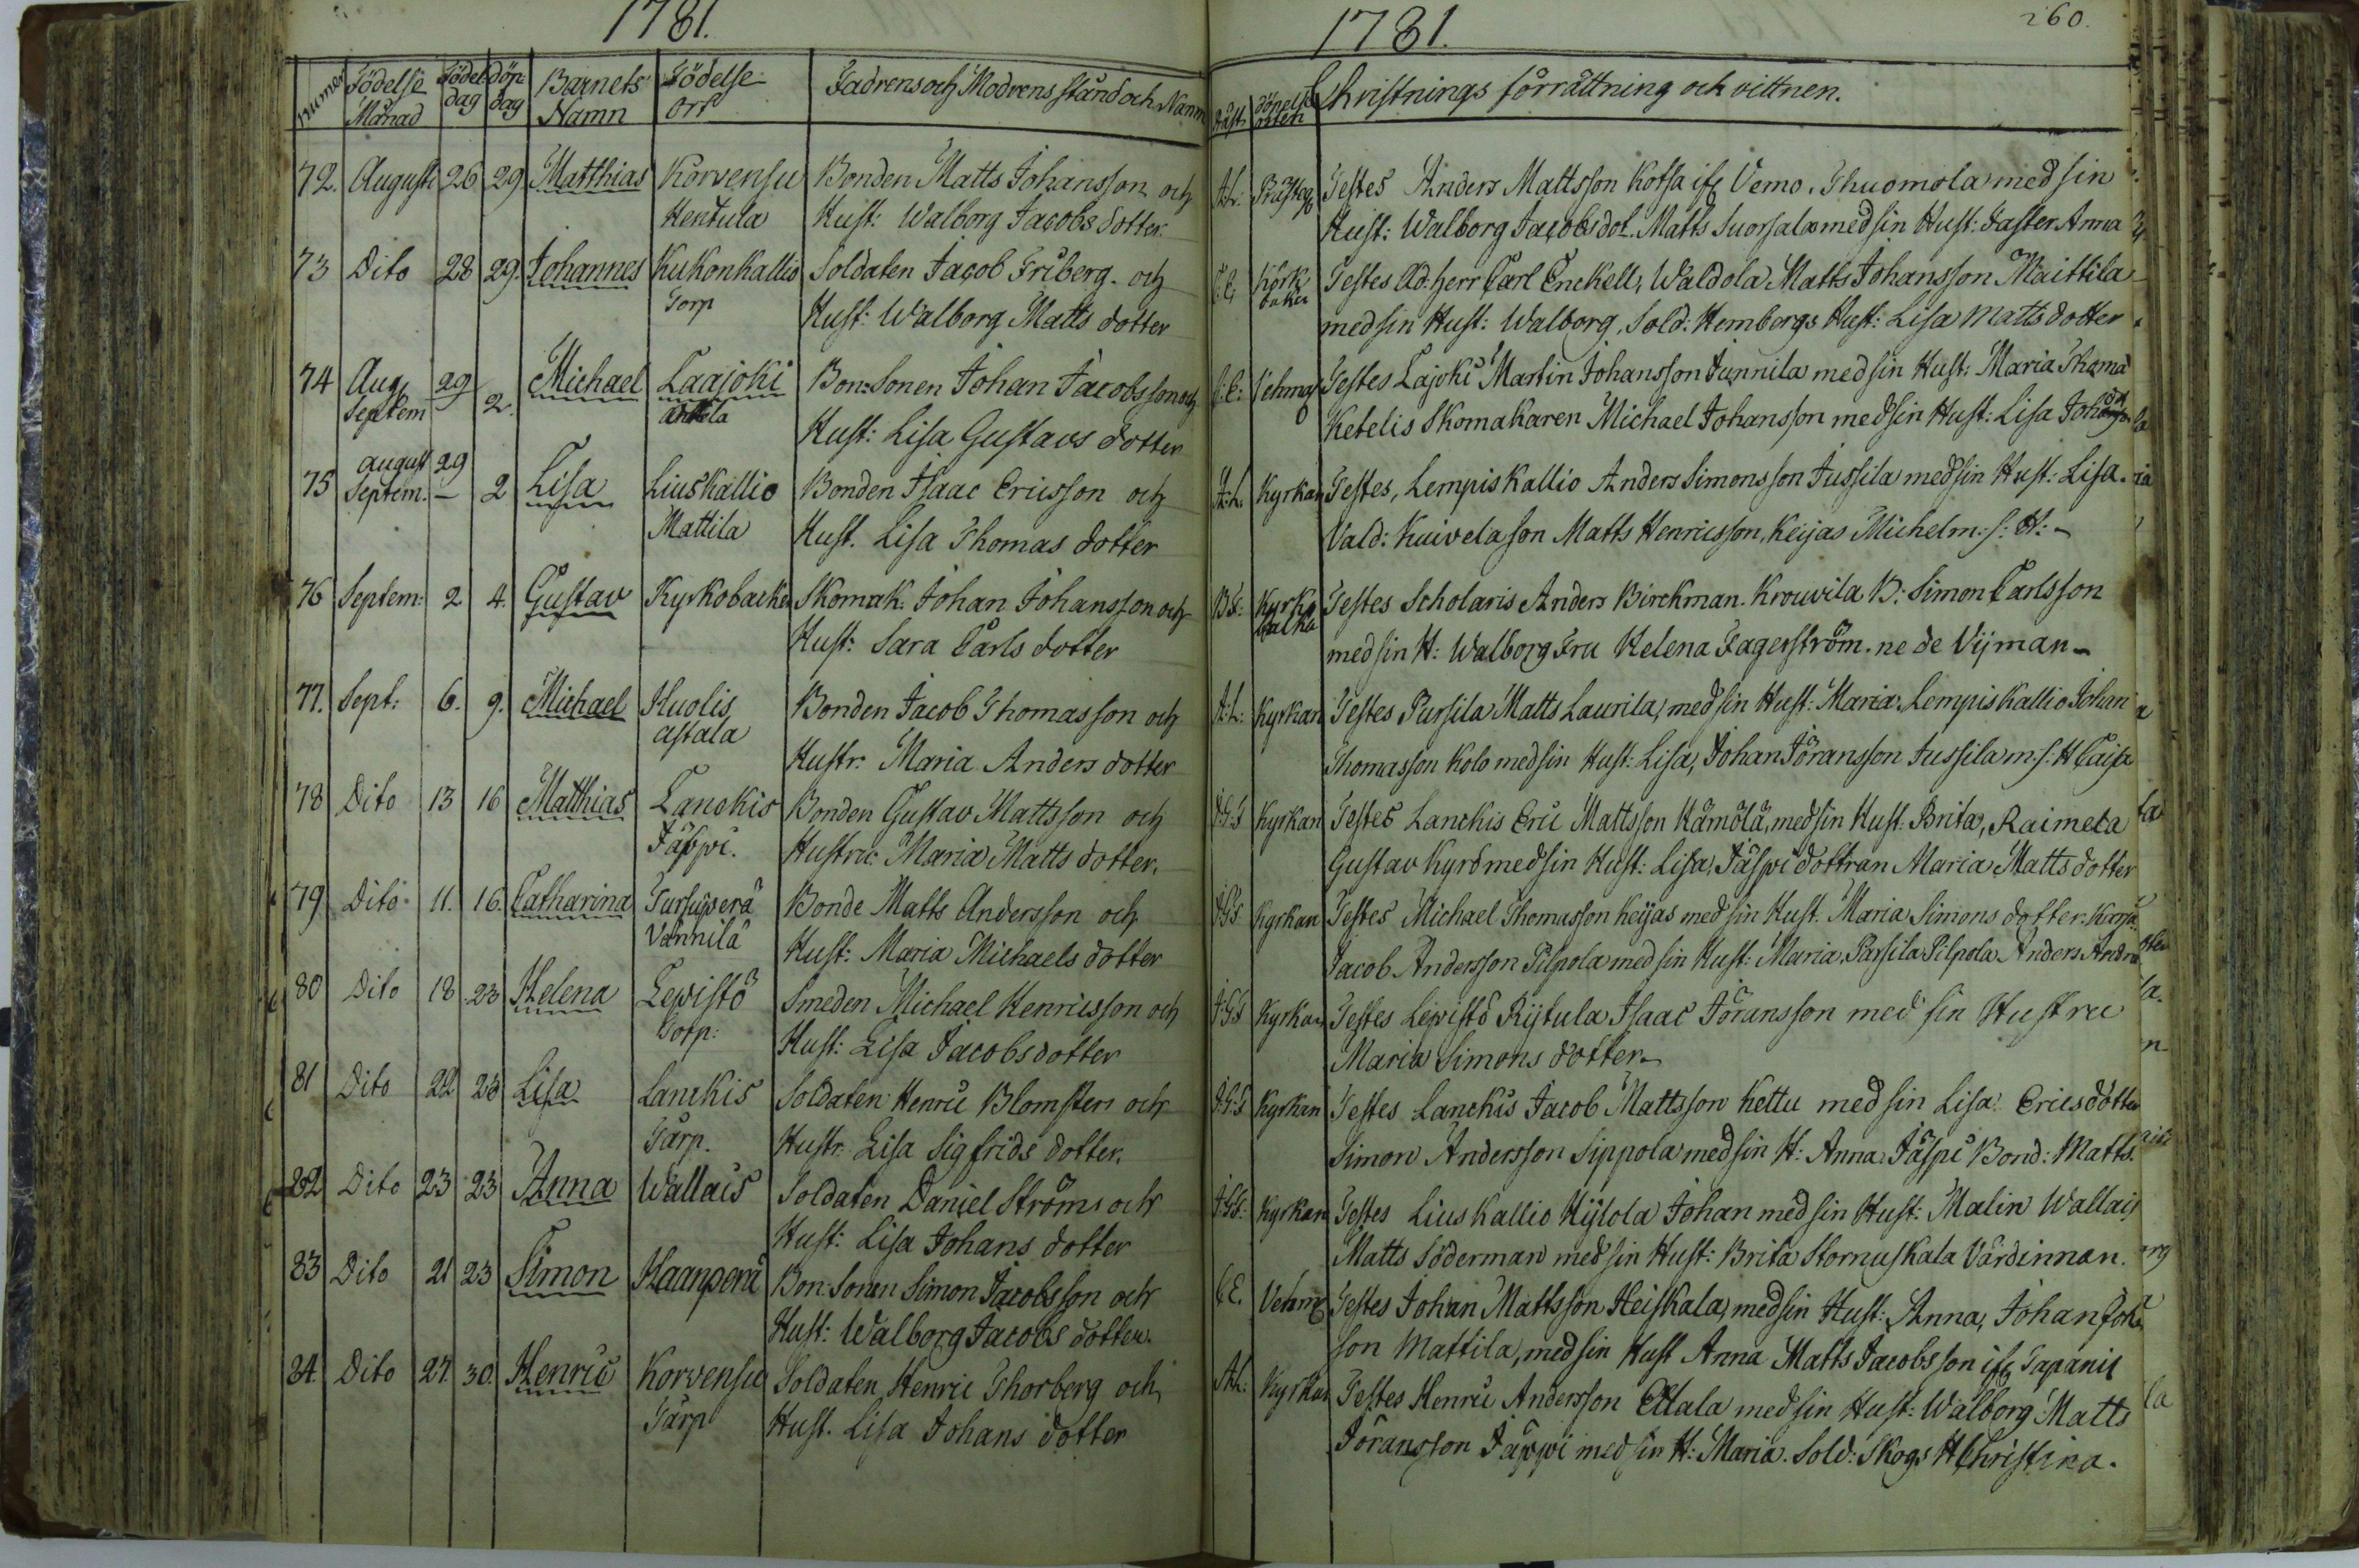 1781.
Numer Födelse Månad Födel dag döp dag Barnets Namn Födelse Ort Fadrens och Modrens stånd och Namn
72. Augusti 26 29 Matthias Korvensu Bonden Matts Johansson och
Hentula Hust: Walborg Jacobs dotter
73 Dito 28 29. Johannes Kukonkallio Soldaten Jacob Friberg. och
Torp Hust: Walborg Matts dotter
74 Aug 29 Michael Laajoki Bon: Sonen Johan Jacobsson och
Septem 2. Hust: Lisa Gustavs dotter
August 29
75 Septem. – 2 Lisa Liuskallio Bonden Isaac Ericsson och
Mattila Hust. Lisa Thomas dotter
76 Septem: 2 4. Gustav Kyrkobacken Skomak: Johan Johansson och
Hust: Sara Carls dotter
77. Sept: 6. 9. Michael Huolis Bonden Jacob Thomasson och
astala Hustr: Maria Anders dotter
78 Dito 13 16 Matthias Lanckis Bonden Gustav Mattsson och
Jäspi. Hustru: Maria Matts dotter.
79 Dito 11. 16. Catharina Bonde Matts Andersson och
Vännilä Hust: Maria Michaels dotter
80 Dito 18 23 Helena Lepistö Smeden Michael Henricsson och
Torp: Hust: Lisa Jacobsdotter
81 Dito 22 23 Lisa Lanckis Soldaten Henric Blomsten och
Tårp. Hustr: Lisa Sigfrids dotter.
82 Dito 23 23 Anna Wallais Soldaten Daniel Ströms och
Hust: Lisa Johans dotter
83 Dito 21 23 Simon Haanperä Bon: Sonen Simon Jacobsson och
Hust: Walborg Jacobs dotter.
84. Dito 27. 30. Henric Korvensu Soldaten Henric Thorberg och
Tårp Hust. Lisa Johans dotter
1781.
260.
Präst. döpelse orten Christnings förrättning och vittnen.
A.L: Testes Anders Mattsson Kotsa ifr Vemo. Thuomola med sin
Hust: Walborg Jacobsdot. Matts Suorsala med sin Hust: Faster Anna
C.E. Körk backen Testes Ad: herr Carl Enckell, Waldola Matts Johansson Maittila
med sin Hust: Walborg, Sold: Hembergs Hust: Lisa Matts dotter
C.E: Testes Lajoki Martin Johansson Junnila med sin Hust: Maria Thoma
Ketelis Skomakaren Michael Johansson med sin Hust: Lisa
A:L. Kyrkan Testes, Lempiskallio Anders Simonsson Jussila med sin Hust: Lisa.
Vald: Kuivela son Matts Henricsson, Keijas Michel m: s: H: –
Kyrko Testes Scholaris Anders Birckman. Krouvila B: Simon Carlsson
backa med sin H: Walborg Fru Helena Fagerström. ne de Vijman –
A:L: Kyrkan Testes Pursila Matts Laurila, med sin Hust: Maria. Lempiskallio Johan
Thomasson Kolo med sin Hust: Lisa, Johan Jöransson Jussila m: s: H Caisa
J.G.S Kyrkan Testes Lanckis Eric Mattsson Hämölä, med sin Hust: Brita, Raimela
Gustav Kyrö med sin Hust: Lisa, Jäspi dottran Maria Matts dotter
J.G.S. Kyrkan Testes Michael Thomasson Keijas med sin Hust. Maria Simons dotter.
Jacob Andersson Pilpola med sin Hust: Maria, Parsila Pilpola Anders
J:G:S Kyrkan Testes Lepistö Rijtula Isaac Jöransson med sin Hustru
Maria Simons dotter –
J:G:S Kyrkan Testes Lanckis Jacob Mattsson Kettu med sin Lisa Ericsdotter
Simon Andersson Sippola med sin H: Anna. Jäspi Bond: Matts.
J:G:S: Kyrkan Testes Liuskallio Hijlola Johan med sin Hust: Malin Wallais
Matts Söderman med sin Hust: Brita Stornuskala Värdinnan.
C.E. Testes Johan Mattsson Heiskala, med sin Hust: Anna, Johan
son Mattila, med sin Hust Anna Matts Jacobsson ifr Tapanis
A:L: Kyrkan Testes Henric Andersson med sin Hust: Walborg Matts
Jöransson Jäspi med sin H: Maria. Sold: Skogs H Christina.